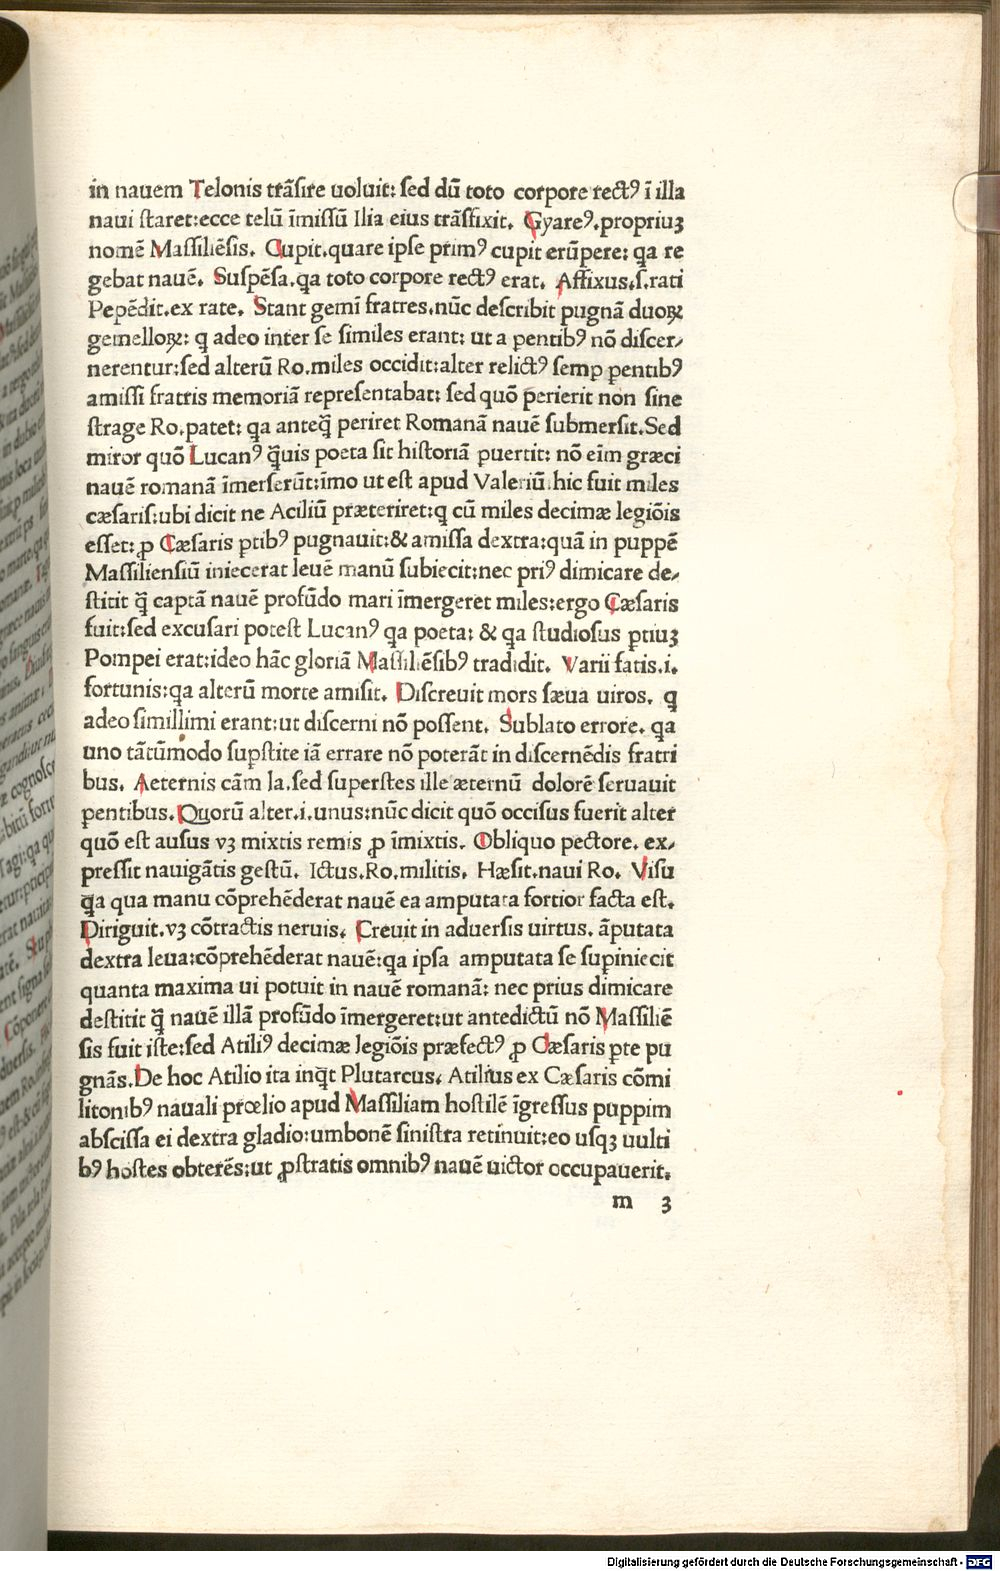 in nauem Telonis trãsire uoluit: sed dũ toto corpore rectꝰ ĩ illa
naui staret:ecce telũ ĩmissũ Ilia eius trãssixit. Gyareꝰ.propriuꝫ
nomẽ Massiliẽsis. Cupit.quare ipse primꝰ cupit erũpere: qa re
gebat nauẽ. Suspẽsa.qa toto corpore rectꝰ erat. Affixus.s.rati
Pepẽdit.ex rate. Stant gemĩ fratres.nũc describit pugnã duoꝝ
gemelloꝝ: q adeo inter se similes erant: ut a pentibꝰ nõ discer-
nerentur:sed alterũ Ro.miles occidit:alter relictꝰ semp pentibꝰ
amissi fratris memoriã representabat: sed quõ perierit non sine
strage Ro.patet: qa anteq̃ periret Romanã nauẽ submersit.Sed
miror quõ Lucanꝰ q̃uis poeta sit historiã puertit: nõ eĩm græci
nauẽ romanã ĩmerserũt:ĩmo ut est apud Valeriũ hic fuit miles
cæsaris:ubi dicit ne Aciliũ præteriret:q cũ miles decimæ legiõis
esset: ꝓ Cæsaris ꝑtibꝰ pugnauit:& amissa dextra:quã in puppẽ
Massiliensiũ iniecerat leuẽ manũ subiecit:nec priꝰ dimicare de-
stitit q̃ captã nauẽ profũdo mari ĩmergeret miles:ergo Cæsaris
fuit:sed excusari potest Lucanꝰ qa poeta: & qa studiosus ꝑtiuꝫ
Pompei erat:ideo hãc gloriã Massiliẽsibꝰ tradidit. Varii fatis.i.
fortunis:qa alterũ morte amisit. Discreuit mors sæua uiros. q
adeo simillimi erant:ut discerni nõ possent. Sublato errore. qa
uno tãtũmodo supstite iã errare nõ poterãt in discernẽdis fratri
bus. Aeternis cãm la.sed superstes ille æternũ dolorẽ seruauit
pentibus.Quorũ alter.i.unus:nũc dicit quõ occisus fuerit alter
quõ est ausus vꝫ mixtis remis ꝓ ĩmixtis. Obliquo pectore. ex-
pressit nauigãtis gestũ. Ictus.Ro.militis. Hæsit.naui Ro. Visu
qa qua manu cõprehẽderat nauẽ ea amputata fortior facta est.
Diriguit.vꝫ cõtractis neruis. Creuit in aduersis uirtus. ãputata
dextra leua:cõprehẽderat nauẽ:qa ipsa amputata se supiniecit
quanta maxima ui potuit in nauẽ romanã: nec prius dimicare
destitit q̃ nauẽ illã profũdo ĩmergeret:ut antedictũ nõ Massiliẽ
sis fuit iste:sed Atiliꝰ decimæ legiõis præfectꝰ ꝓ Cæsaris ꝑte pu
gnãs.De hoc Atilio ita inq̃t Plutarcus. Atilius ex Cæsaris cõmi
litonibꝰ nauali prœlio apud Massiliam hostilẽ ĩgressus puppim
abscissa ei dextra gladio:umbonẽ sinistra retinuit:eo usqꝫ uulti
bꝰ hostes obterẽs:ut ꝓstratis omnibꝰ nauẽ uictor occupauerit.
m 3
Digitalisierung gefördert durch die Deutsche Forschungsgemeinschaft - DFG